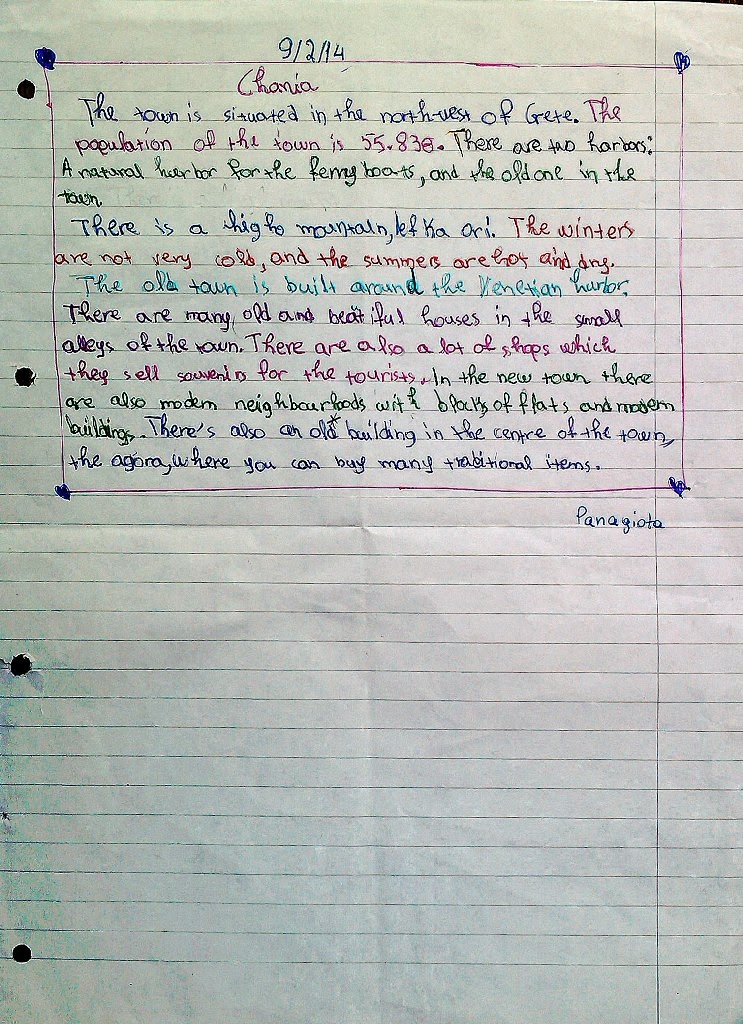 9/2/14
Chania
The town is situated in the north-west of Crete. The
population of the town is 55.838. There are two harbors:
A natural harbor for the ferry boats, and the old one in the
town
There is a high mountain, lefka ori. The winters
are not very cold, and the summers are hot and dry.
The old town is built around the Venetian harbor.
There are many old and beatiful houses in the small
alleys of the town. There are also a lot of shops which
they sell souvenirs for the tourists. In the new town there
are also modern neighbourhoods with blocks of flats and modern
buildings. There's also an old building in the centre of the town,
the agora, where you can buy many traditional items.
Panagiota